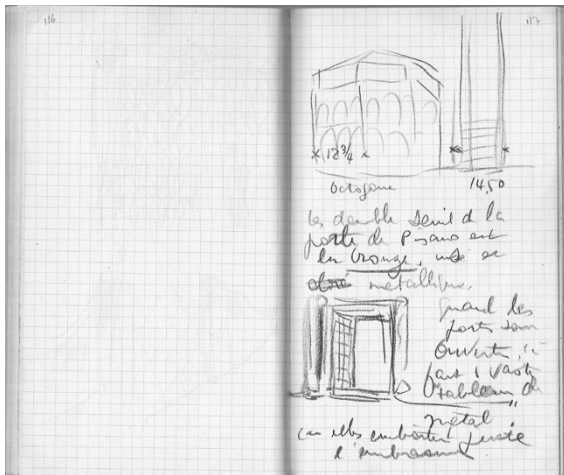 116
117
x 12 3/4 x
Octogone
14,50
les double seuil d la
porte de Pisano est
en bronze,
métallique.
quand les
portes sont
ouvertes,
faut 1 vaste
"tableau de
métal"
car elles emboîtent juste
l'embrasure